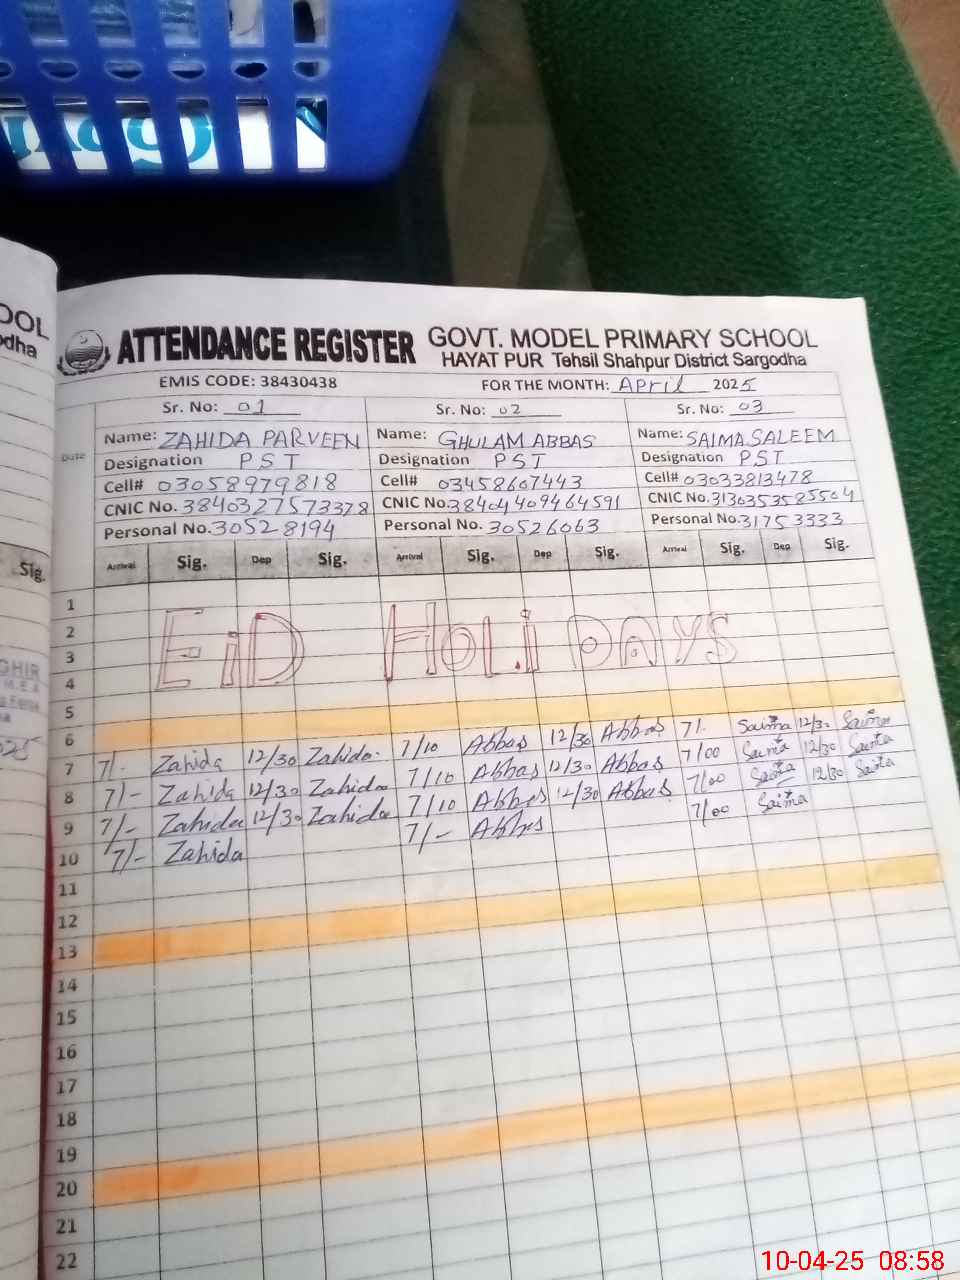 OOL
odha
ATTENDANCE REGISTER GOVT. MODEL PRIMARY SCHOOL
HAYAT PUR Tehsil Shahpur District Sargodha
EMIS CODE: 38430438 FOR THE MONTH: April 2025
Sr. No: 01 Sr. No: 02 Sr. No: 03
Date
Name: ZAHIDA PARVEEN Name: GHULAM ABBAS Name: SAIMA SALEEM
Designation PST Designation PST Designation PST
Cell# 03058979818 Cell# 03458607443 Cell# 03033813478
CNIC No. 3840327573378 CNIC No. 3840409464591 CNIC No. 3130353585504
Personal No. 30528194 Personal No. 30526063 Personal No. 31753333
Sig. Arrival Sig. Dep Sig. Arrival Sig. Dep Sig. Arrival Sig. Dep Sig.
1
2 EiD HOLiDAYS
3
4
GHIR
M.E.A
5
6
7 7/- Zahida 12/30 Zahida. 7/10 Abbas 12/30 Abbas 7/. Saima 12/30 Saima
8 7/- Zahida 12/30 Zahida 7/10 Abbas 12/30 Abbas 7/00 Saima 12/30 Saima
9 7/- Zahida 12/30 Zahida 7/10 Abbas 12/30 Abbas 7/00 Saima 12/30 Saima
10 7/- Zahida 7/- Abbas 7/00 Saima
11
12
13
14
15
16
17
18
19
20
21
22
10-04-25 08:58